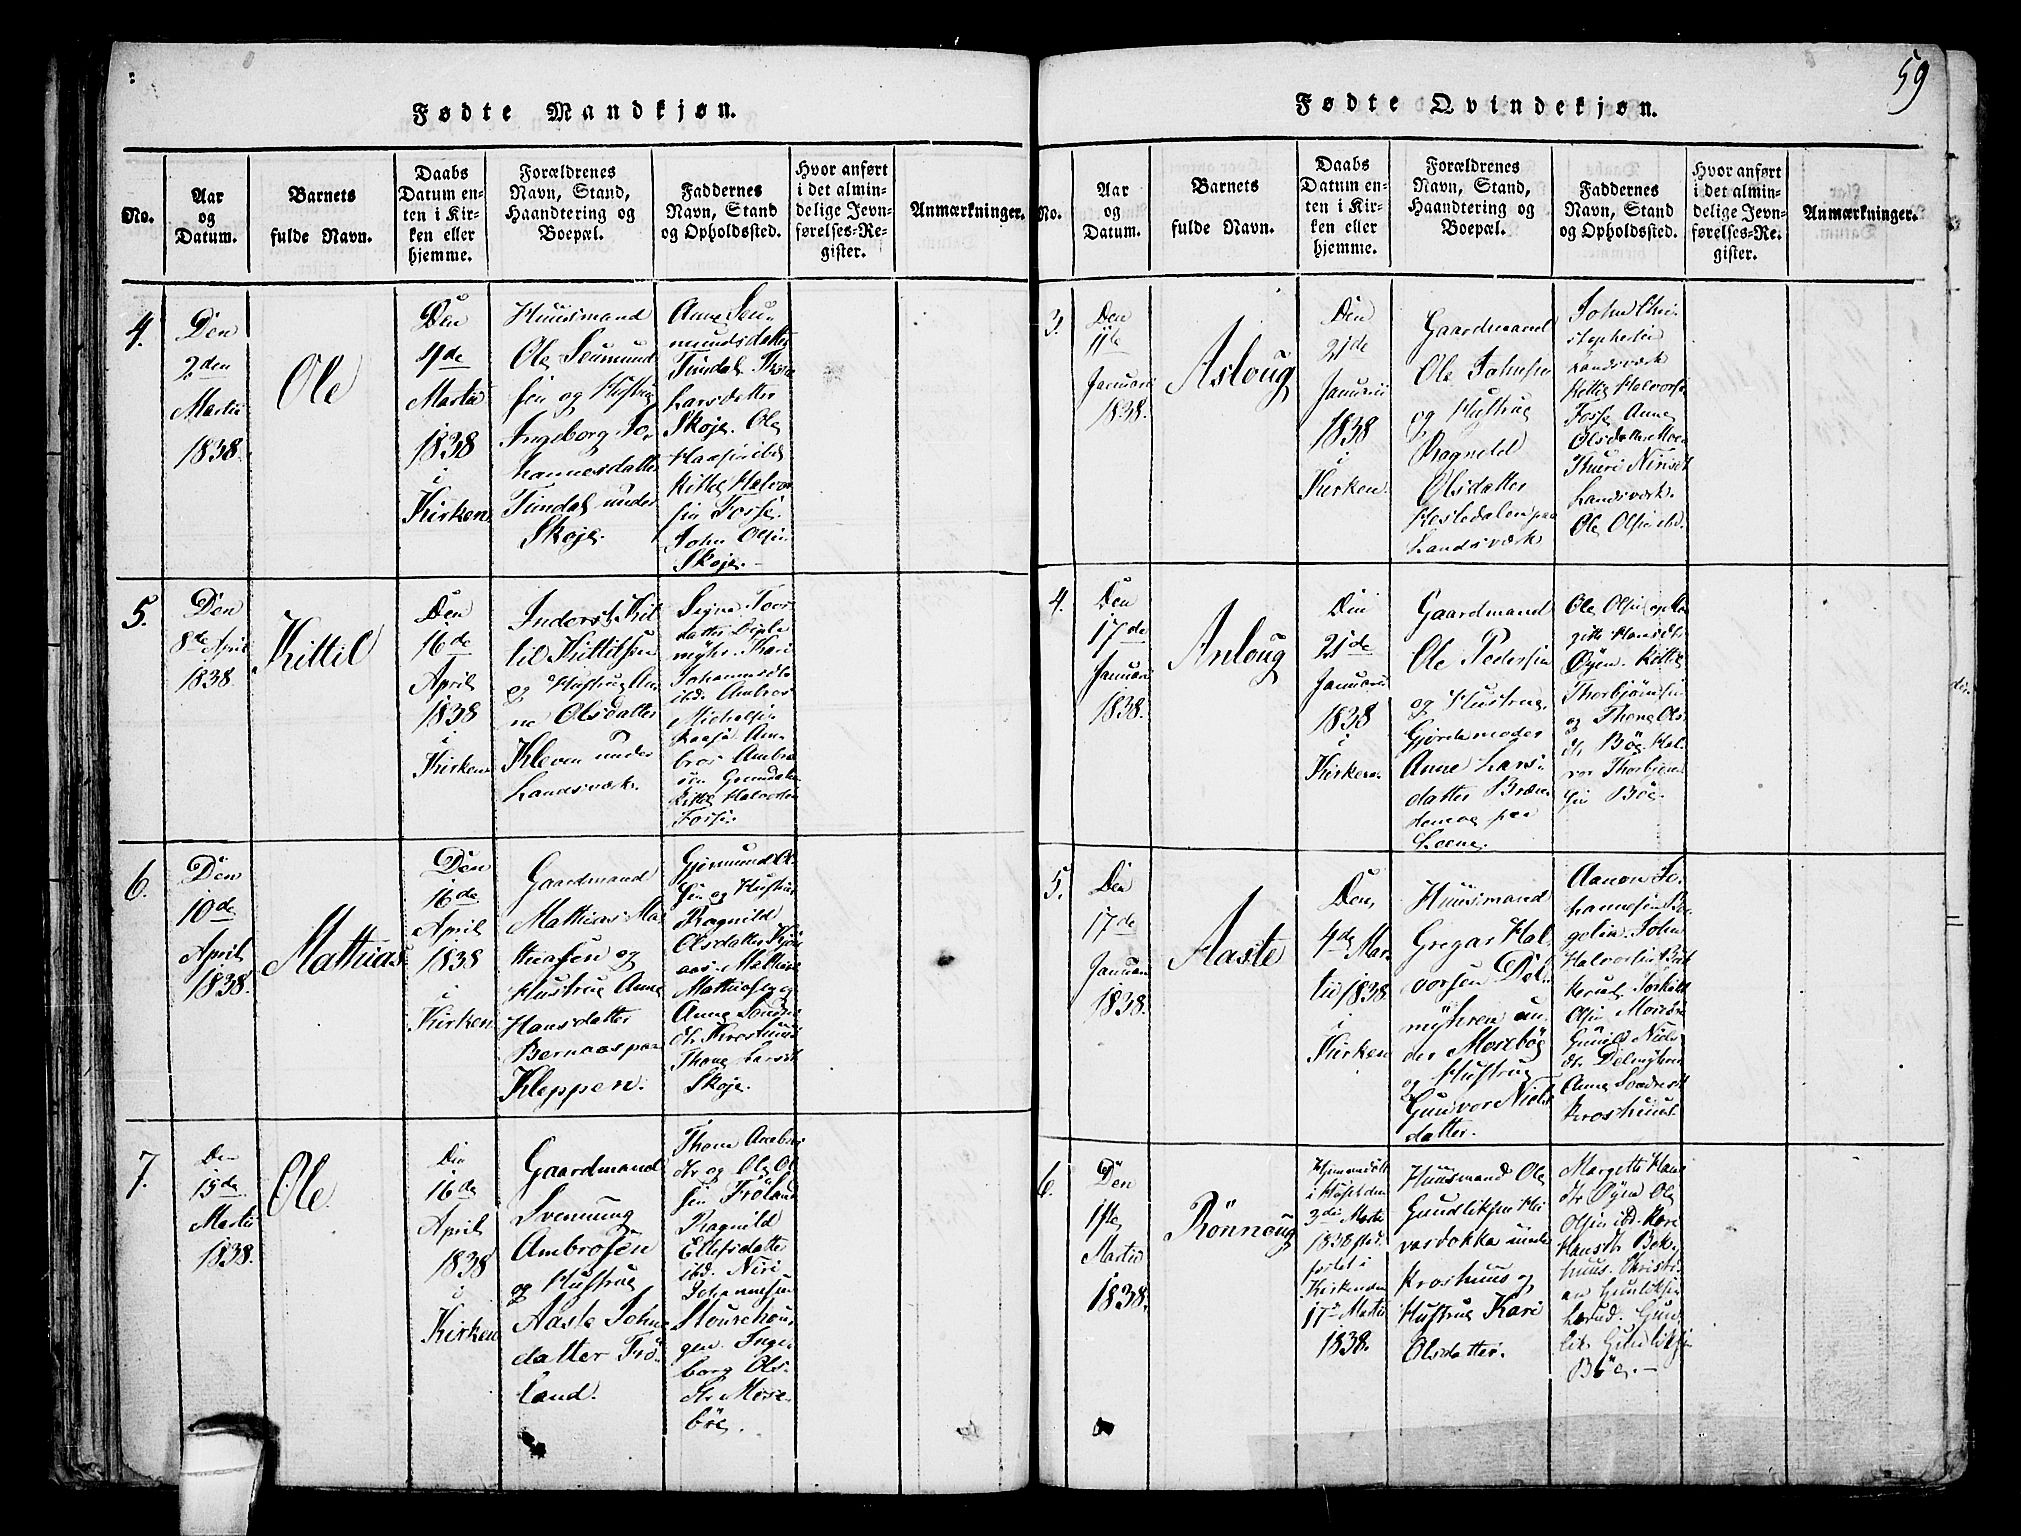 59
Fødte Mandkjøn.
No.
Aar
og
Datum.
Barnets
fulde Navn.
Daabs
Datum en-
ten i Kir-
ken eller
hjemme.
Forældrenes
Navn, Stand,
Haandtering og
Boepæl.
Faddernes
Navn, Stand
og Opholdssted.
Hvor anført
i det almin-
delige Jevn-
førelses-Re-
gister.
Anmærkninger.
4.
Den
2den
Martii
1838.
Ole
Den
4de
Martii
1838
i
Kirken
Huusmand
Ole Seumund
sen og Hustrue
Ingeborg Jo-
hannesdatter
Tindal under
Skoje.
Anne Seu-
mundsdatter
Tindal Thore
Larsdatter
Skoje. Ole
ibd.
Kittil Halvor
sen Fosse.
John Olsen
Skoje.
5.
Den
8de April
1838.
Kittil
Den
16de
April
1838
i
Kirken
Inderst Kit
til Kittilsen
og Hustrue An
ne Olsdatter
Kleven under
Landsværk.
Signe Toor
datter
myhr. Kari
Johannesdtr
ibd. Ambros
Michelsen
Am-
bros Ambro
sen
Kittil Halvorsen
Fosse.
6.
Den
10de
April
1838.
Mathias
Den
16de
April
1838
i
Kirken
Gaardmand
Mathias Ma
thiasen og
Hustrue Anne
Hansdatter
Bernaas paa
Kleppen.
Gjermund O.
sen og Hustru
Ragnild
Olsdatter
aas. Mathias
Mathiasen og
Anne
dtr Kroshuus
Thone Larsdt
Skoje.
7.
Den
15de
Martii
1838.
Ole
Den
16de
April
1838
i
Kirken
Gaardmand
Svennung
Ambrosen
og Hustrue
Aaste John
datter Frö
land.
Thone Ambros
dtr og Ole Ol
sen Fröland
Ragnild
Ellefsdatter
ibd. Niri
Johannesen
gen. Inge
borg Ols-
dtr Mose-
böe.
Fødte Qvindekjøn.
No.
Aar
og
Datum.
Barnets
fulde Navn.
Daabs
Datum en-
ten i Kir-
ken eller
hjemme.
Forældrenes
Navn, Stand,
Haandtering og
Boepæl.
Faddernes
Navn, Stand
og Opholdssted.
Hvor anført
i det almin-
delige Jevn-
førelses-Re-
gister.
Anmærkninger.
3.
Den
11te
Januarii
1838.
Asloug
Den
21de
Januarii
1838
i
Kirken.
Gaardmand
Ole Johnsen
og Hustrue
Ragnild
Olsdatter
Hestedalen paa
Landsværk
John Chri
stophersen
Landsværk
Kittil Halvorsen
Fosse Anne
Olsdatter Moen
Thuri Nirisdt
Landsværk.
Ole Olsen ibd.
4.
Den
17de
Januarii
1838.
Anloug
Den
21de
Januarii
1838
i
Kirken.
Gaardmand
Ole Pedersen
og Hustrue,
Gjordemoder
Anne Lars-
datter Bræn
demoe paa
Loene.
Ole Olsen og
gitte Hansdtr
Øyen. Kittil
Thorbjörnsen
og Thone Ols
dtr Böe Hal
vor Thorbjörn
sen Böe.
5.
Den
17de
Januarii
1838.
Aaste
Den
4de Mar
tii 1838
i
Kirken
Huusmand
Gregar Hal
vorsen Del-
myhren un-
der Mosebøe
og Hustrue
Gunvor Niels
datter.
Aanon Jo-
hannesen
John
Halvorsen
Torkild
Olsen
Gunild Niels
dtr Delmyhren
Anne Sondresdt
Kroshuus
6.
Den
1ste
Martii
1838.
Rönnoug
Hjemmedöbt
i
3die Martii
1838
i
Kirken den
17de Martii
1838.
Huusmand Ole
Gundliksen
under
Kroshuus og
Hustrue Kari
Olsdatter.
Margetta Hans
dtr Øyen Ole
Olsen ibd. Kari
Hansdtr Bek-
huus. Christi
an Gunliksen
Gun
lik Gunliksen
Böe.